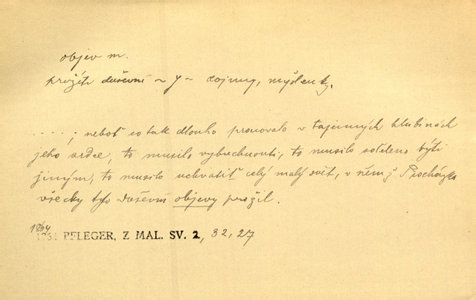 objev m.
prožíti duševní ~ y ~ dojmy, myšlenky.
....; neboť co tak dlouho pracovalo v tajemných hlubinách
jeho srdce, to musilo vybuchnouti, to musilo sděleno býti
jiným, to musilo uchvátit celý malý svět, v němž Procházka
všecky tyto duševní objevy prožil.
PFLEGER, Z MAL. SV. 2, 32, 27